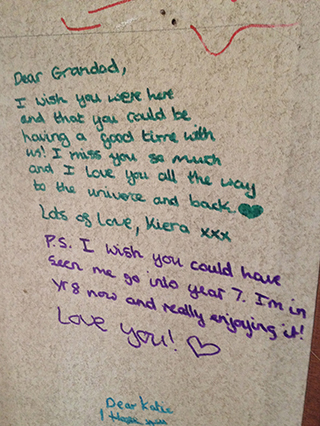 Dear Grandad,
I wish you were here
and that you could be
having a good time with
us! I miss you so much
and I love you all the way
to the universe and back
Lots of Love, Kiera xxx
P.S. I wish you could have
seen me go into year 7. I'm in
yr8 now and really enjoying it!
Love you!
Dear Katie
I hope you